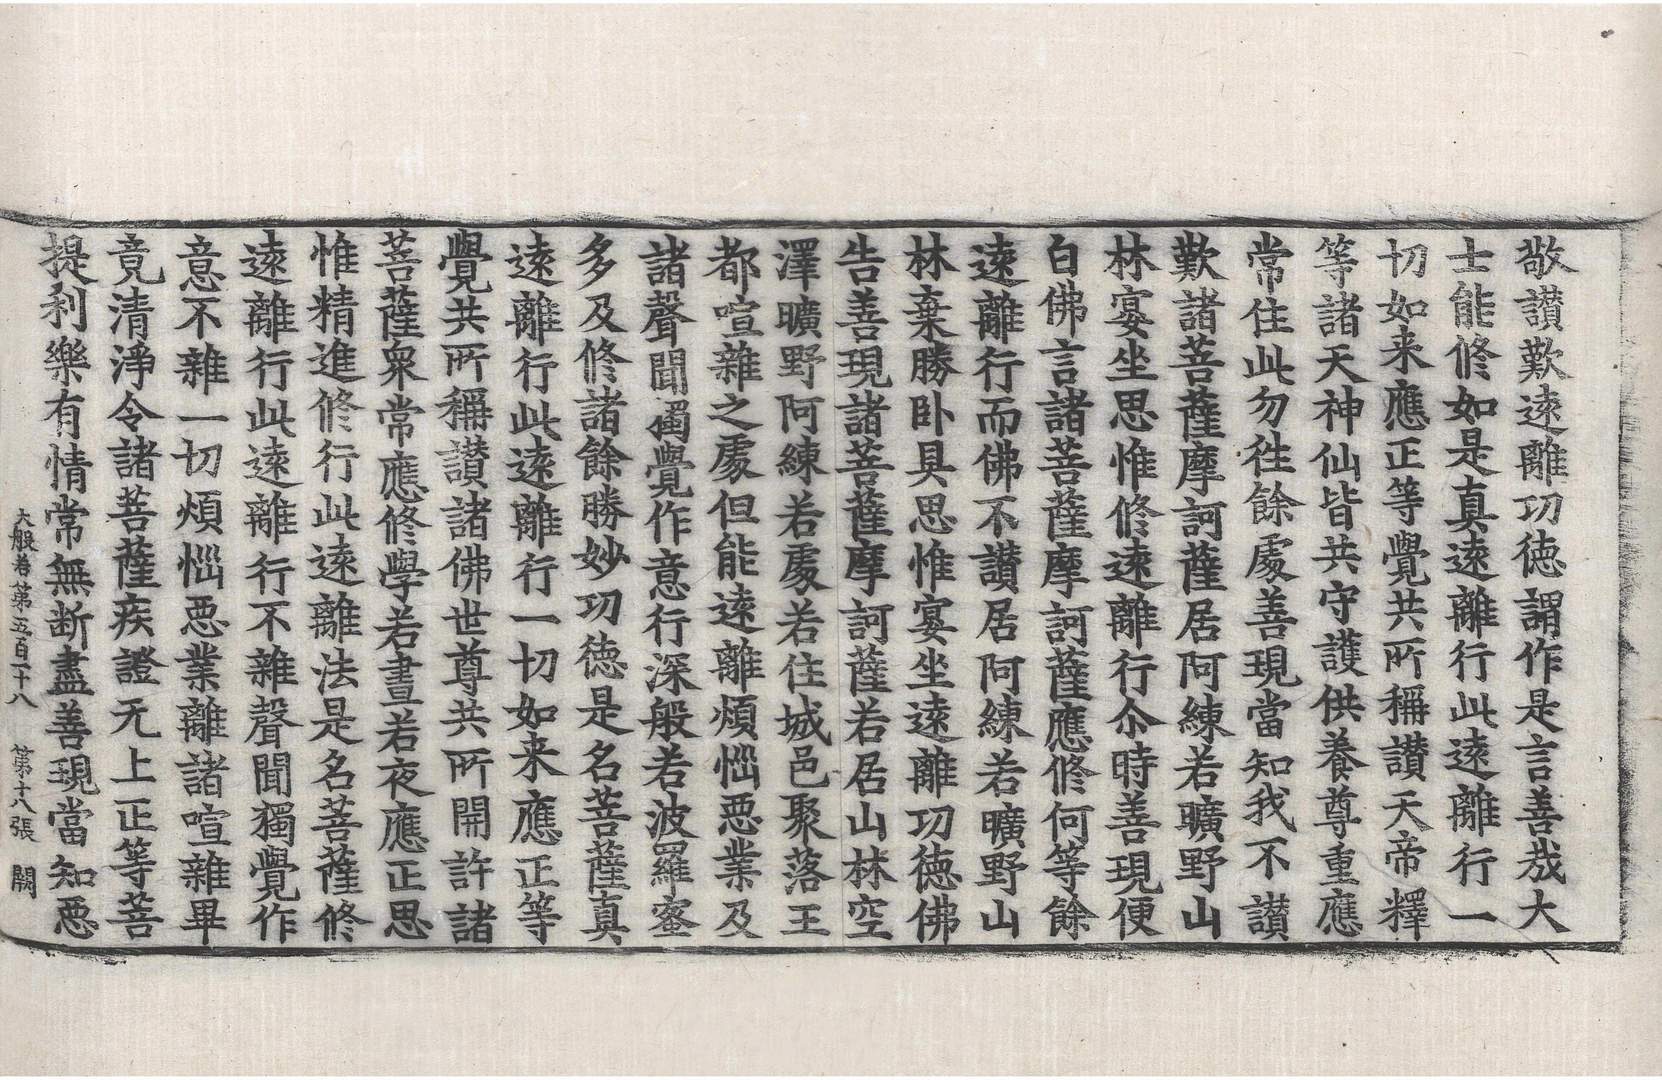 敬讃歎逺離功徳謂作是言善㢤大
士能修如是真逺離行此逺離行一
切如来應正等覺共所稱讃天帝釋
等諸天神仙皆共守護供養尊重應
常住此勿徃餘處善現當知我不讃
歎諸菩薩摩訶薩居阿練若曠野山
林宴坐思惟修逺離行尒時善現便
白佛言諸菩薩摩訶薩應修何等餘
逺離行而佛不讃居阿練若曠野山
林棄勝卧具思惟宴坐逺離功徳佛
告善現諸菩薩摩訶薩若居山林空
澤曠野阿練若處若住城邑聚落王
都喧雜之處但能逺離煩惱惡業及
諸聲聞獨覺作意行深般若波羅蜜
多及修諸餘勝妙功徳是名菩薩真
逺離行此逺離行一切如来應正等
覺共所稱讃諸佛世尊共所開許諸
菩薩衆常應修學若晝若夜應正思
惟精進修行此逺離法是名菩薩修
逺離行此逺離行不雜聲聞獨覺作
意不雜一切煩惱惡業離諸喧雜畢
竟清淨令諸菩薩疾證无上正等菩
提利樂有情常無斷盡善現當知惡
大般卷第五百一十八 第十八張 闕